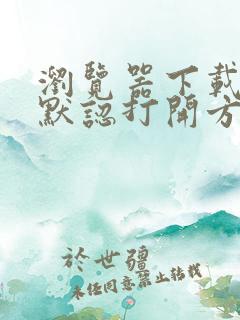 瀏覽器下載
默認打開方
於世疆
未任同意禁止转载